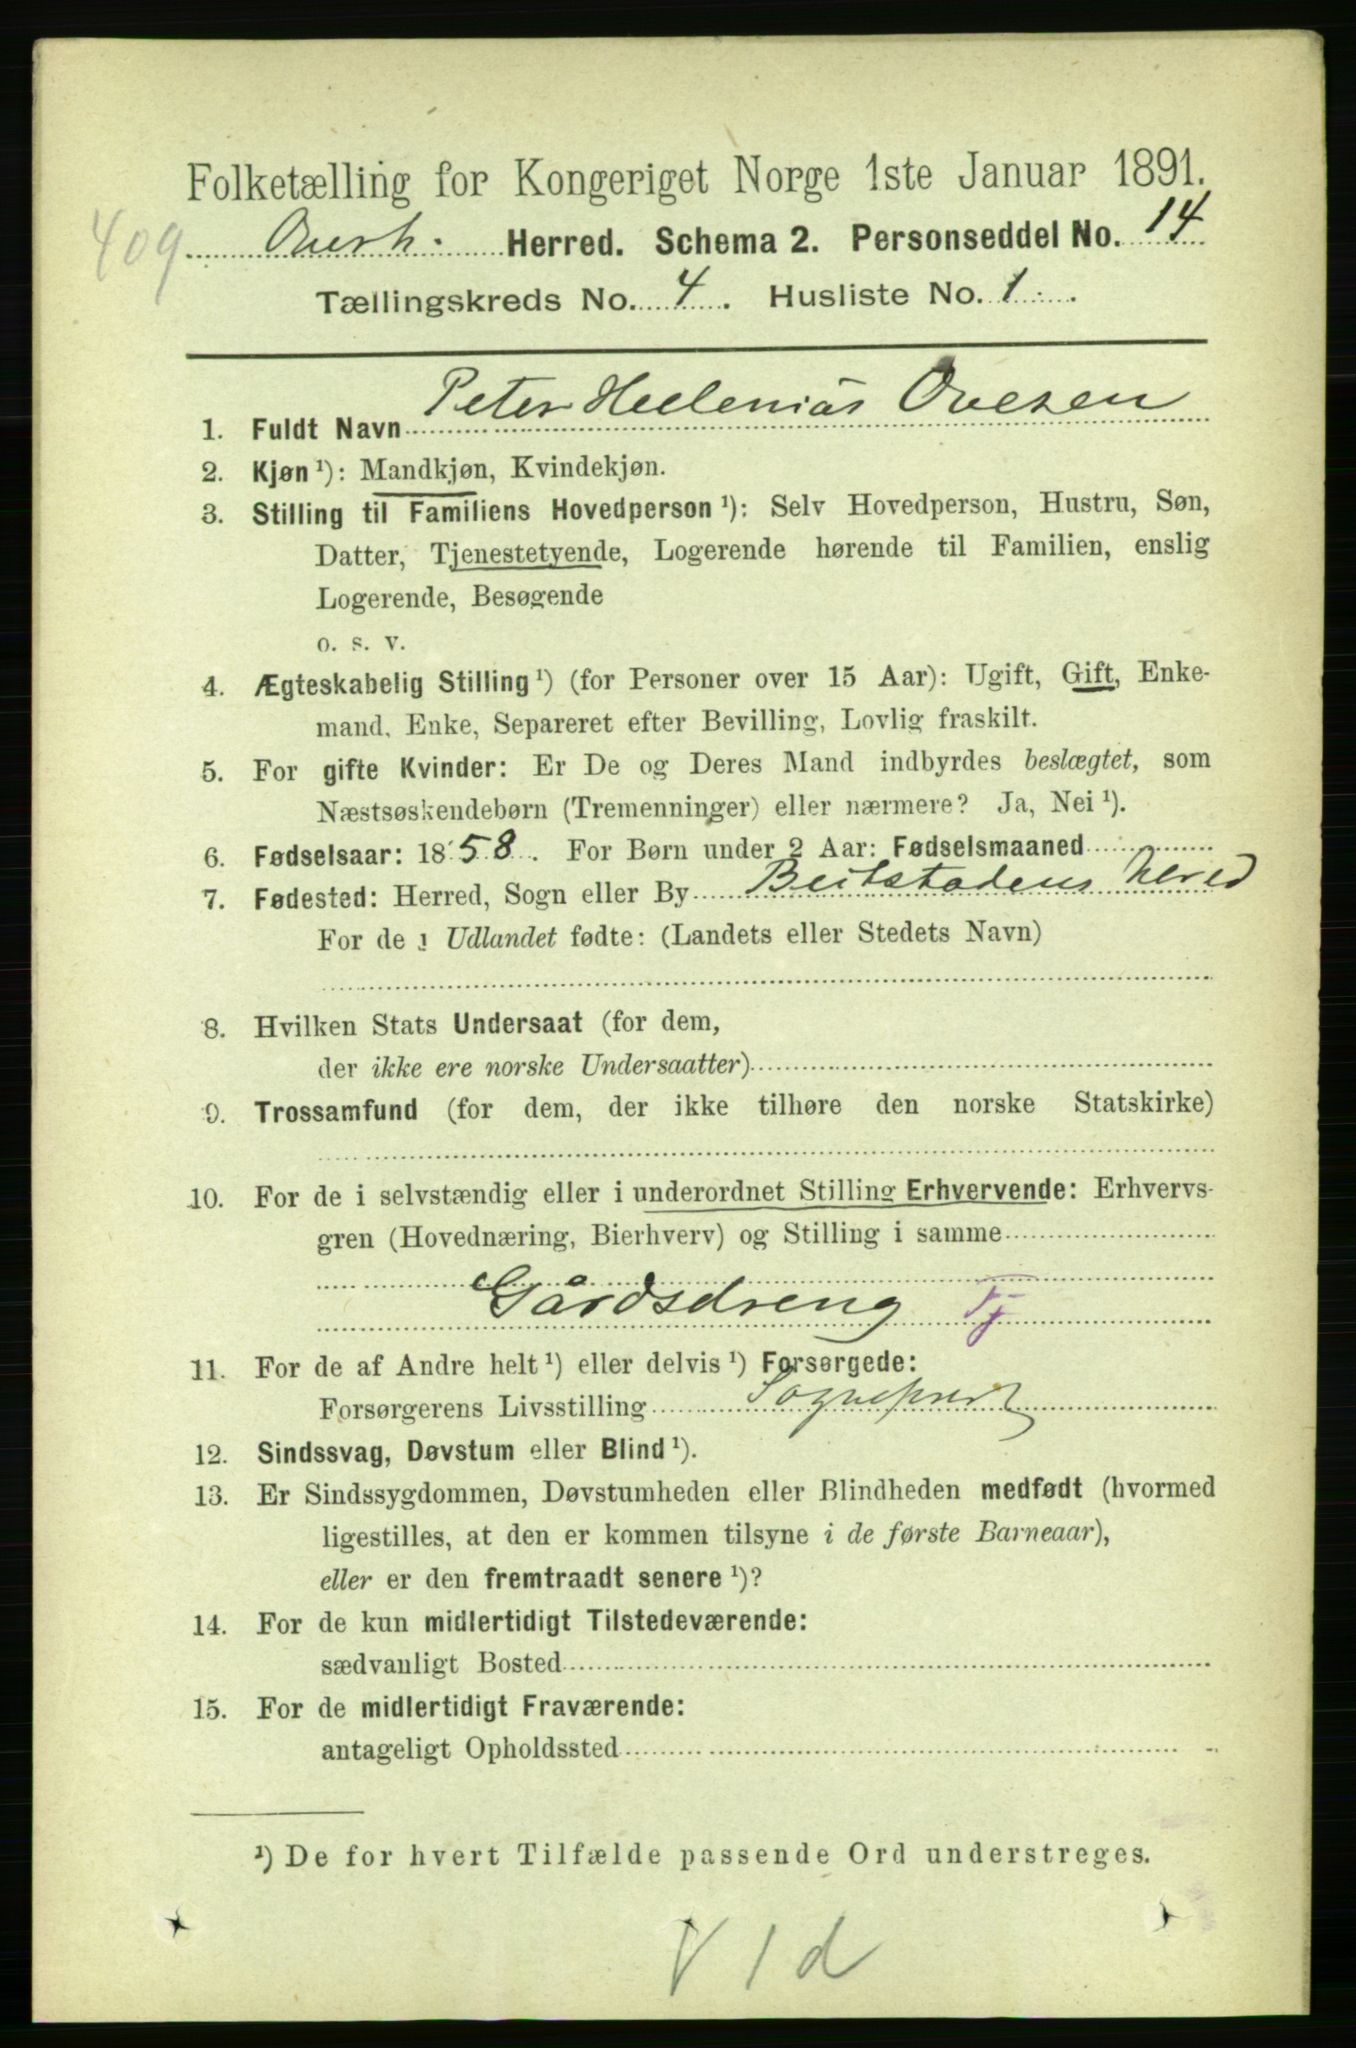 Folketælling for Kongeriget Norge 1ste Januar 1891.
409 Overh. Herred. Schema 2. Personseddel No. 14
Tællingskreds No. 4. Husliste No. 1.
1. Fuldt Navn Peter Ovesen
2. Kjøn ¹): Mandkjøn, Kvindekjøn.
3. Stilling til Familiens Hovedperson ¹): Selv Hovedperson, Hustru, Søn,
Datter, Tjenestetyende, Logerende hørende til Familien, enslig
Logerende, Besøgende
o. s. v.
4. Ægteskabelig Stilling ¹) (for Personer over 15 Aar): Ugift, Gift, Enke-
mand, Enke, Separeret efter Bevilling, Lovlig fraskilt.
5. For gifte Kvinder: Er De og Deres Mand indbyrdes beslægtet, som
Næstsøskendebørn (Tremenninger) eller nærmere? Ja, Nei ¹).
6. Fødselsaar: 1858. For Børn under 2 Aar: Fødselsmaaned
7. Fødested: Herred, Sogn eller By Beitstadens Herred
For de i Udlandet fødte: (Landets eller Stedets Navn)
8. Hvilken Stats Undersaat (for dem,
der ikke ere norske Undersaatter)
9. Trossamfund (for dem, der ikke tilhøre den norske Statskirke)
10. For de i selvstændig eller i underordnet Stilling Erhvervende: Erhvervs-
gren (Hovednæring, Bierhverv) og Stilling i samme
Gårdsdreng Tj
11. For de af Andre helt ¹) eller delvis ¹) Forsørgede:
Forsørgerens Livsstilling Sogneprest
12. Sindssvag, Døvstum eller Blind ¹).
13. Er Sindssygdommen, Døvstumheden eller Blindheden medfødt (hvormed
ligestilles, at den er kommen tilsyne i de første Barneaar),
eller er den fremtraadt senere ¹)?
14. For de kun midlertidigt Tilstedeværende:
sædvanligt Bosted
15. For de midlertidigt Fraværende:
antageligt Opholdssted
¹) De for hvert Tilfælde passende Ord understreges.
V 1 d